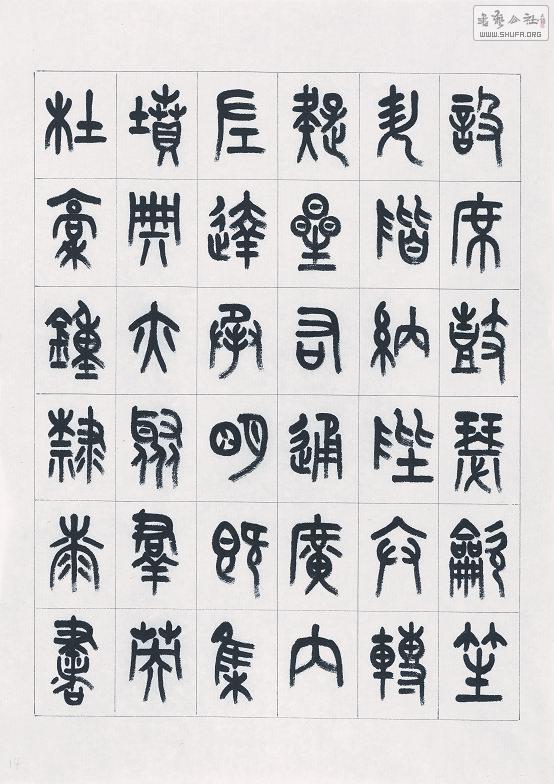 書藝公社
WWW.SHUFA.ORG
設席鼓瑟吹笙
升階納陛弁轉
疑星右通廣內
左達承明既集
墳典亦聚群英
杜稿鍾隸漆書
14